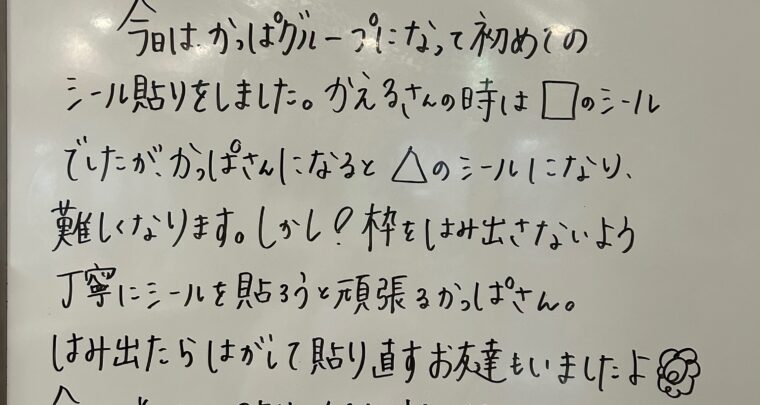 今日は、かっぱグループになって初めての
シール貼りをしました。かえるさんの時は□のシール
でしたが、かっぱさんになると△のシールになり、
難しくなります。しかし！枠をはみ出さないよう
丁寧にシールを貼ろうと頑張るかっぱさん。
はみ出たらはがして貼り直すお友達もいましたよ